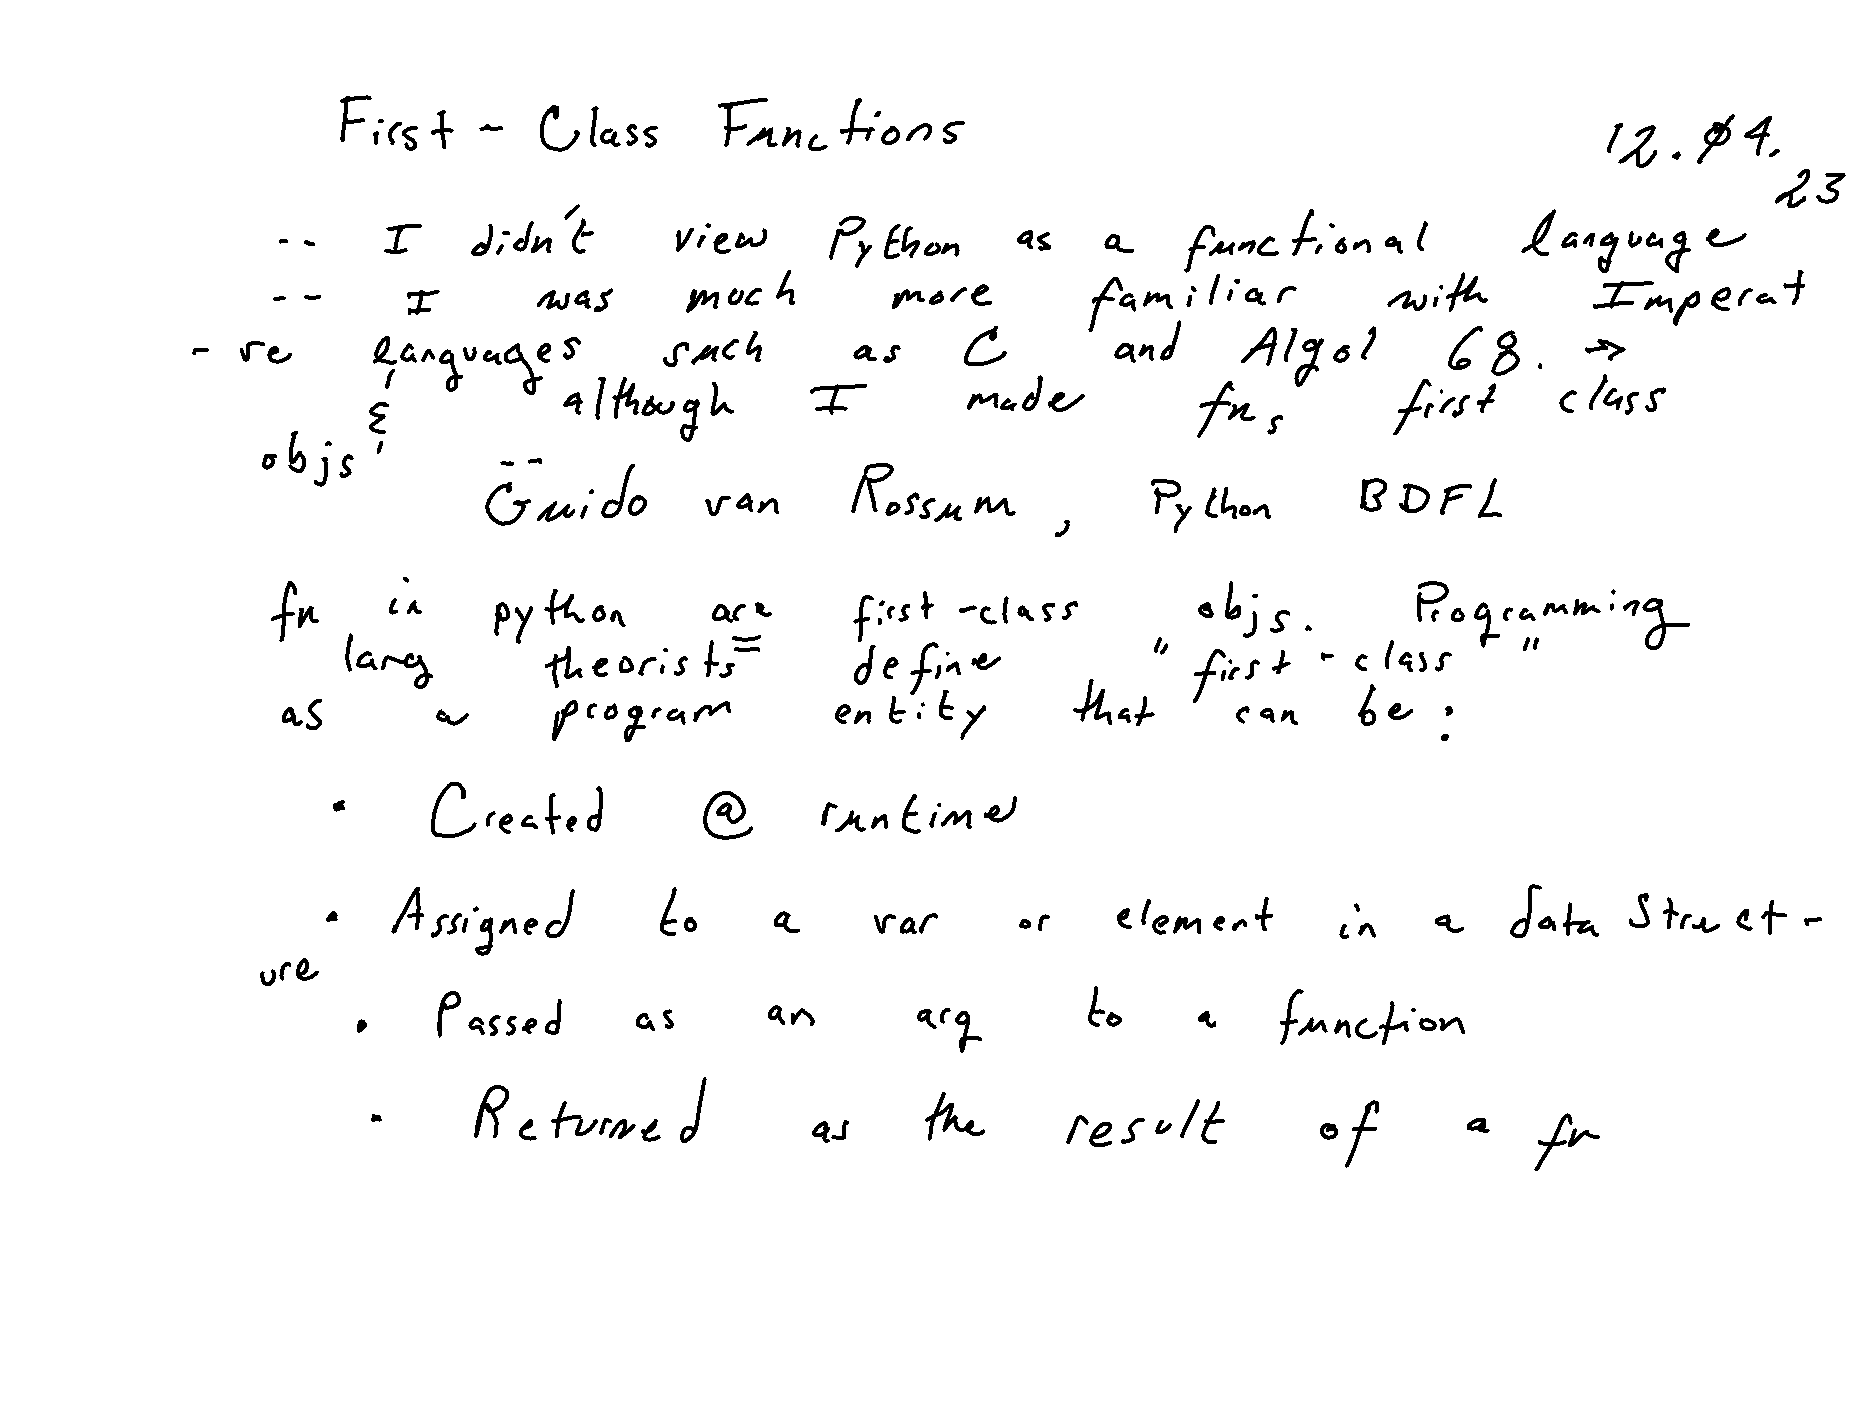 First - Class Functions
12.04.
23
-- I didn't view Python as a functional language
-- I was much more familiar with Imperat
- ve languages such as C and Algol 68. →
& although I made fns first class
objs
-- Guido van Rossum, Python BDFL
fn in python are first-class objs. Programming
lang theorists define "first-class"
as a program entity that can be:
• Created @ runtime
• Assigned to a var or element in a data Struct-
ure
• Passed as an arg to a function
• Returned as the result of a fn